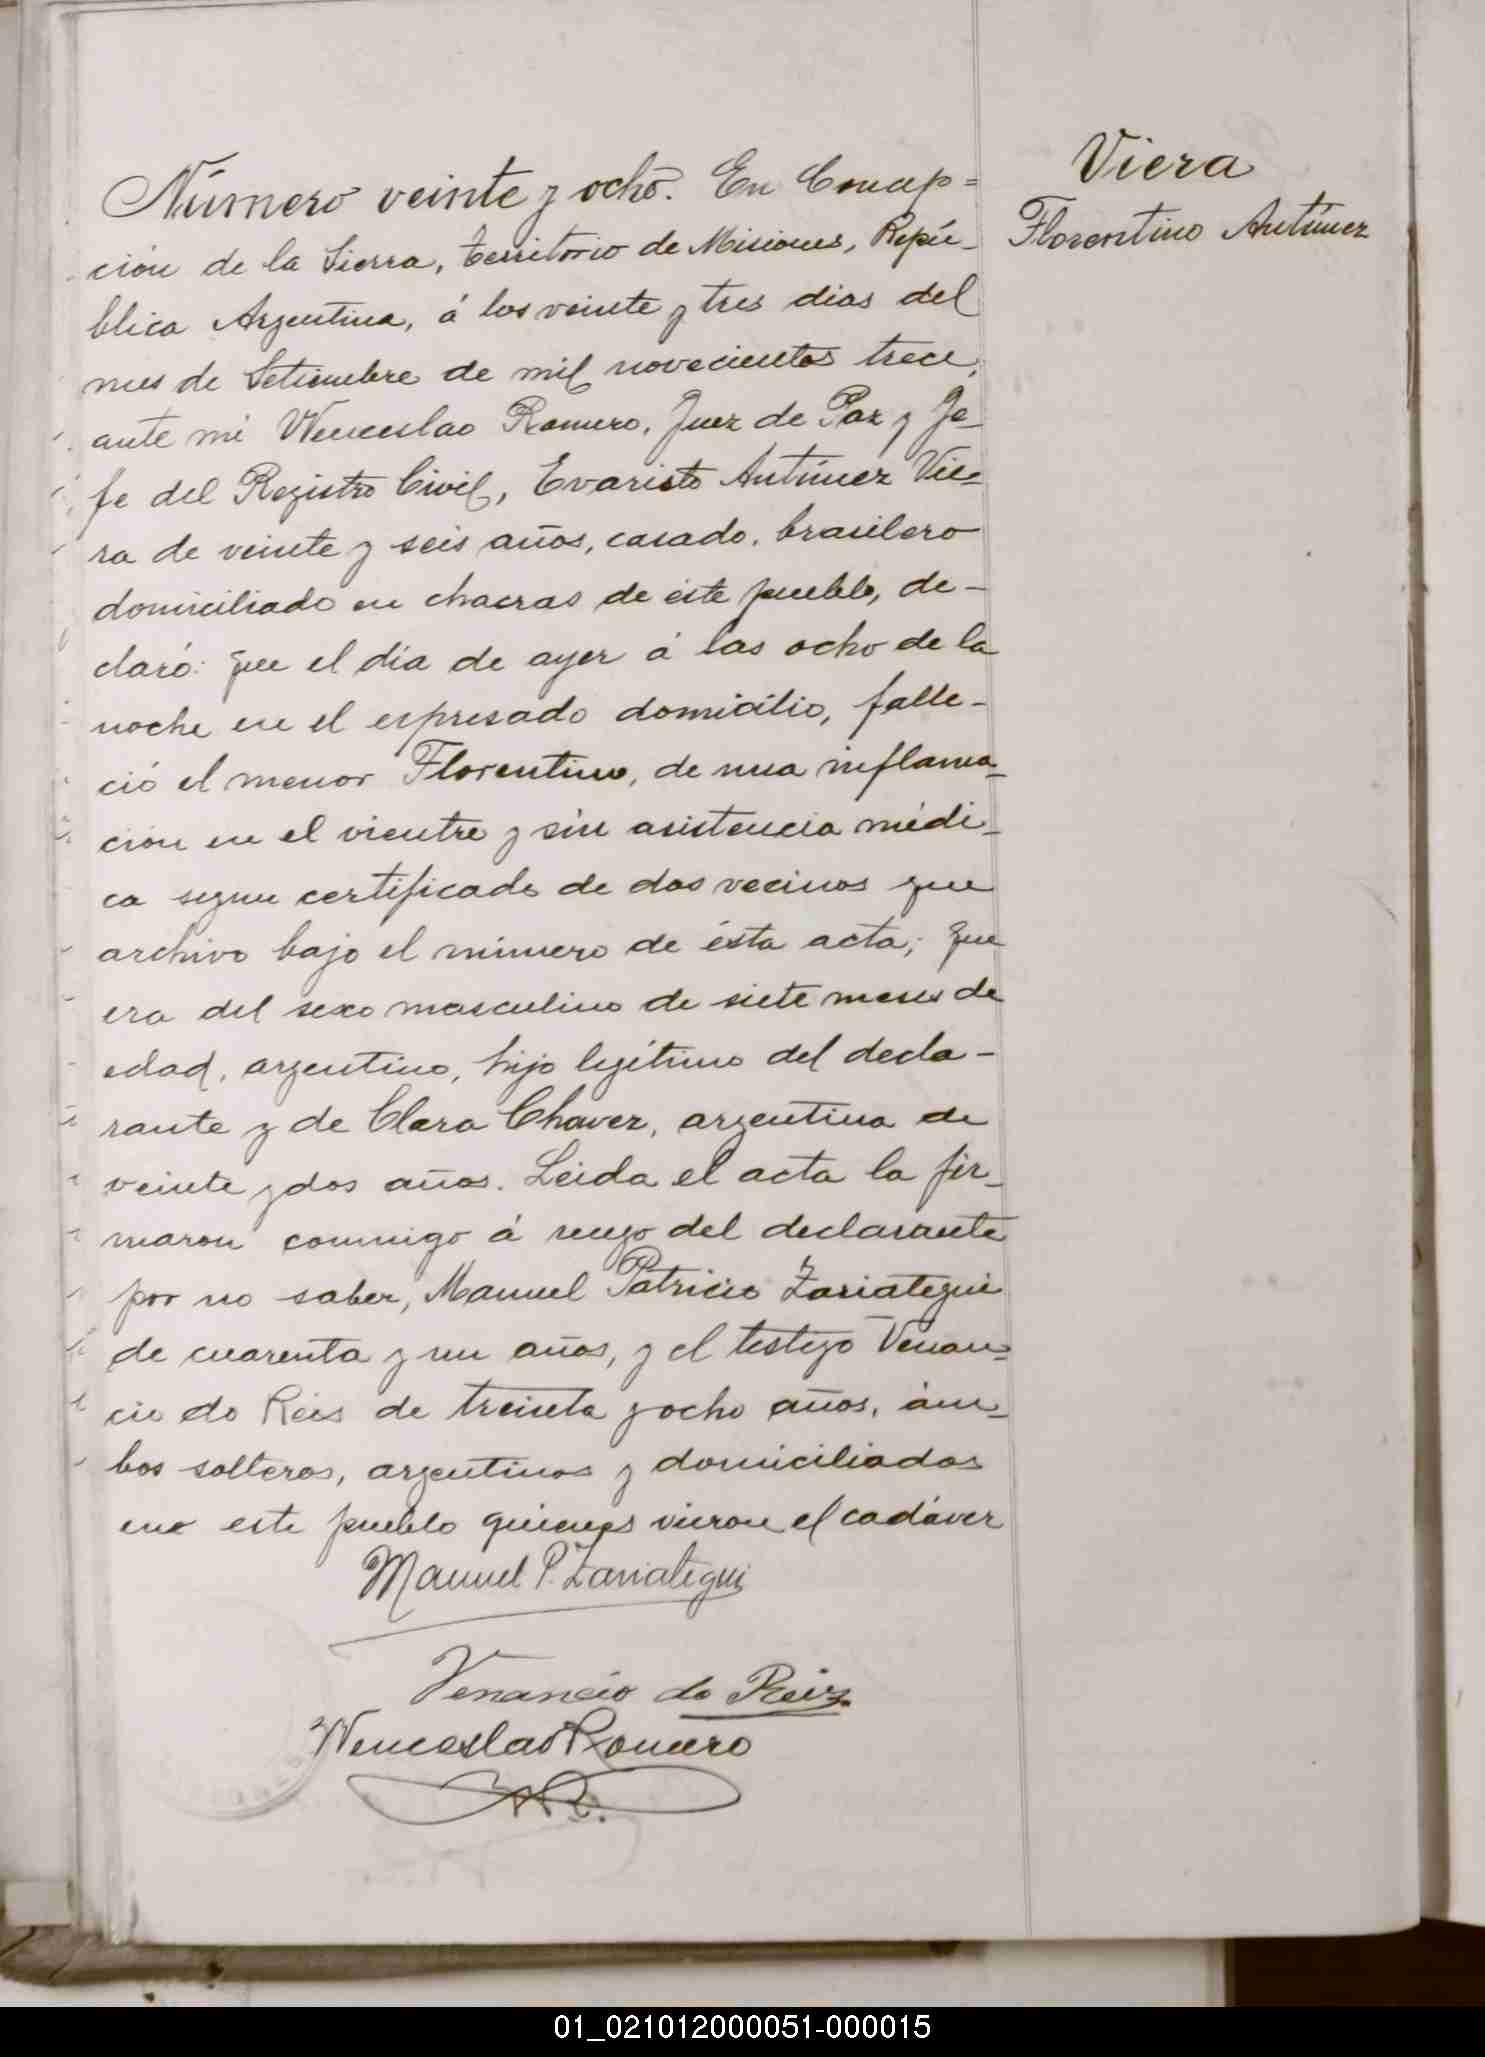 Viera
Florentino Antúnez
Número veinte y ocho. En Concep=
ción de la Sierra, territorio de Misiones, Repú-
blica Argentina, á los veinte y tres dias del
mes de Setiembre de mil novecientos trece,
ante mi Wenceslao Romero, Juez de Paz y Je-
fe del Registro Civil, Evaristo Antúnez Vie=
ra de veinte y seis años, casado, brasilero
domiciliado en chacras de éste pueblo, de-
claró: que el día de ayer á las ocho de la
noche en el expresado domicilio, falle-
ció el menor Florentino, de una inflama-
ción en el vientre y sin asistencia médi-
ca segun certificado de dos vecinos que
archivo bajo el número de ésta acta; que
era del sexo masculino de siete meses de
edad, argentino, hijo legítimo del decla-
rante y de Clara Chavez, argentina de
veinte y dos años. Leida el acta la fir-
maron conmigo á ruego del declarante
por no saber, Manuel Patricio Zariategui
de cuarenta y un años, y el testigo Venan=
cio do Reis de treinta y ocho años, ám-
bos solteros, argentinos y domiciliados
en este pueblo quienes vieron el cadáver
Manuel P. Zariategui
Venancio do Reiz
Wenceslao Romero
WR.
01_021012000051-000015